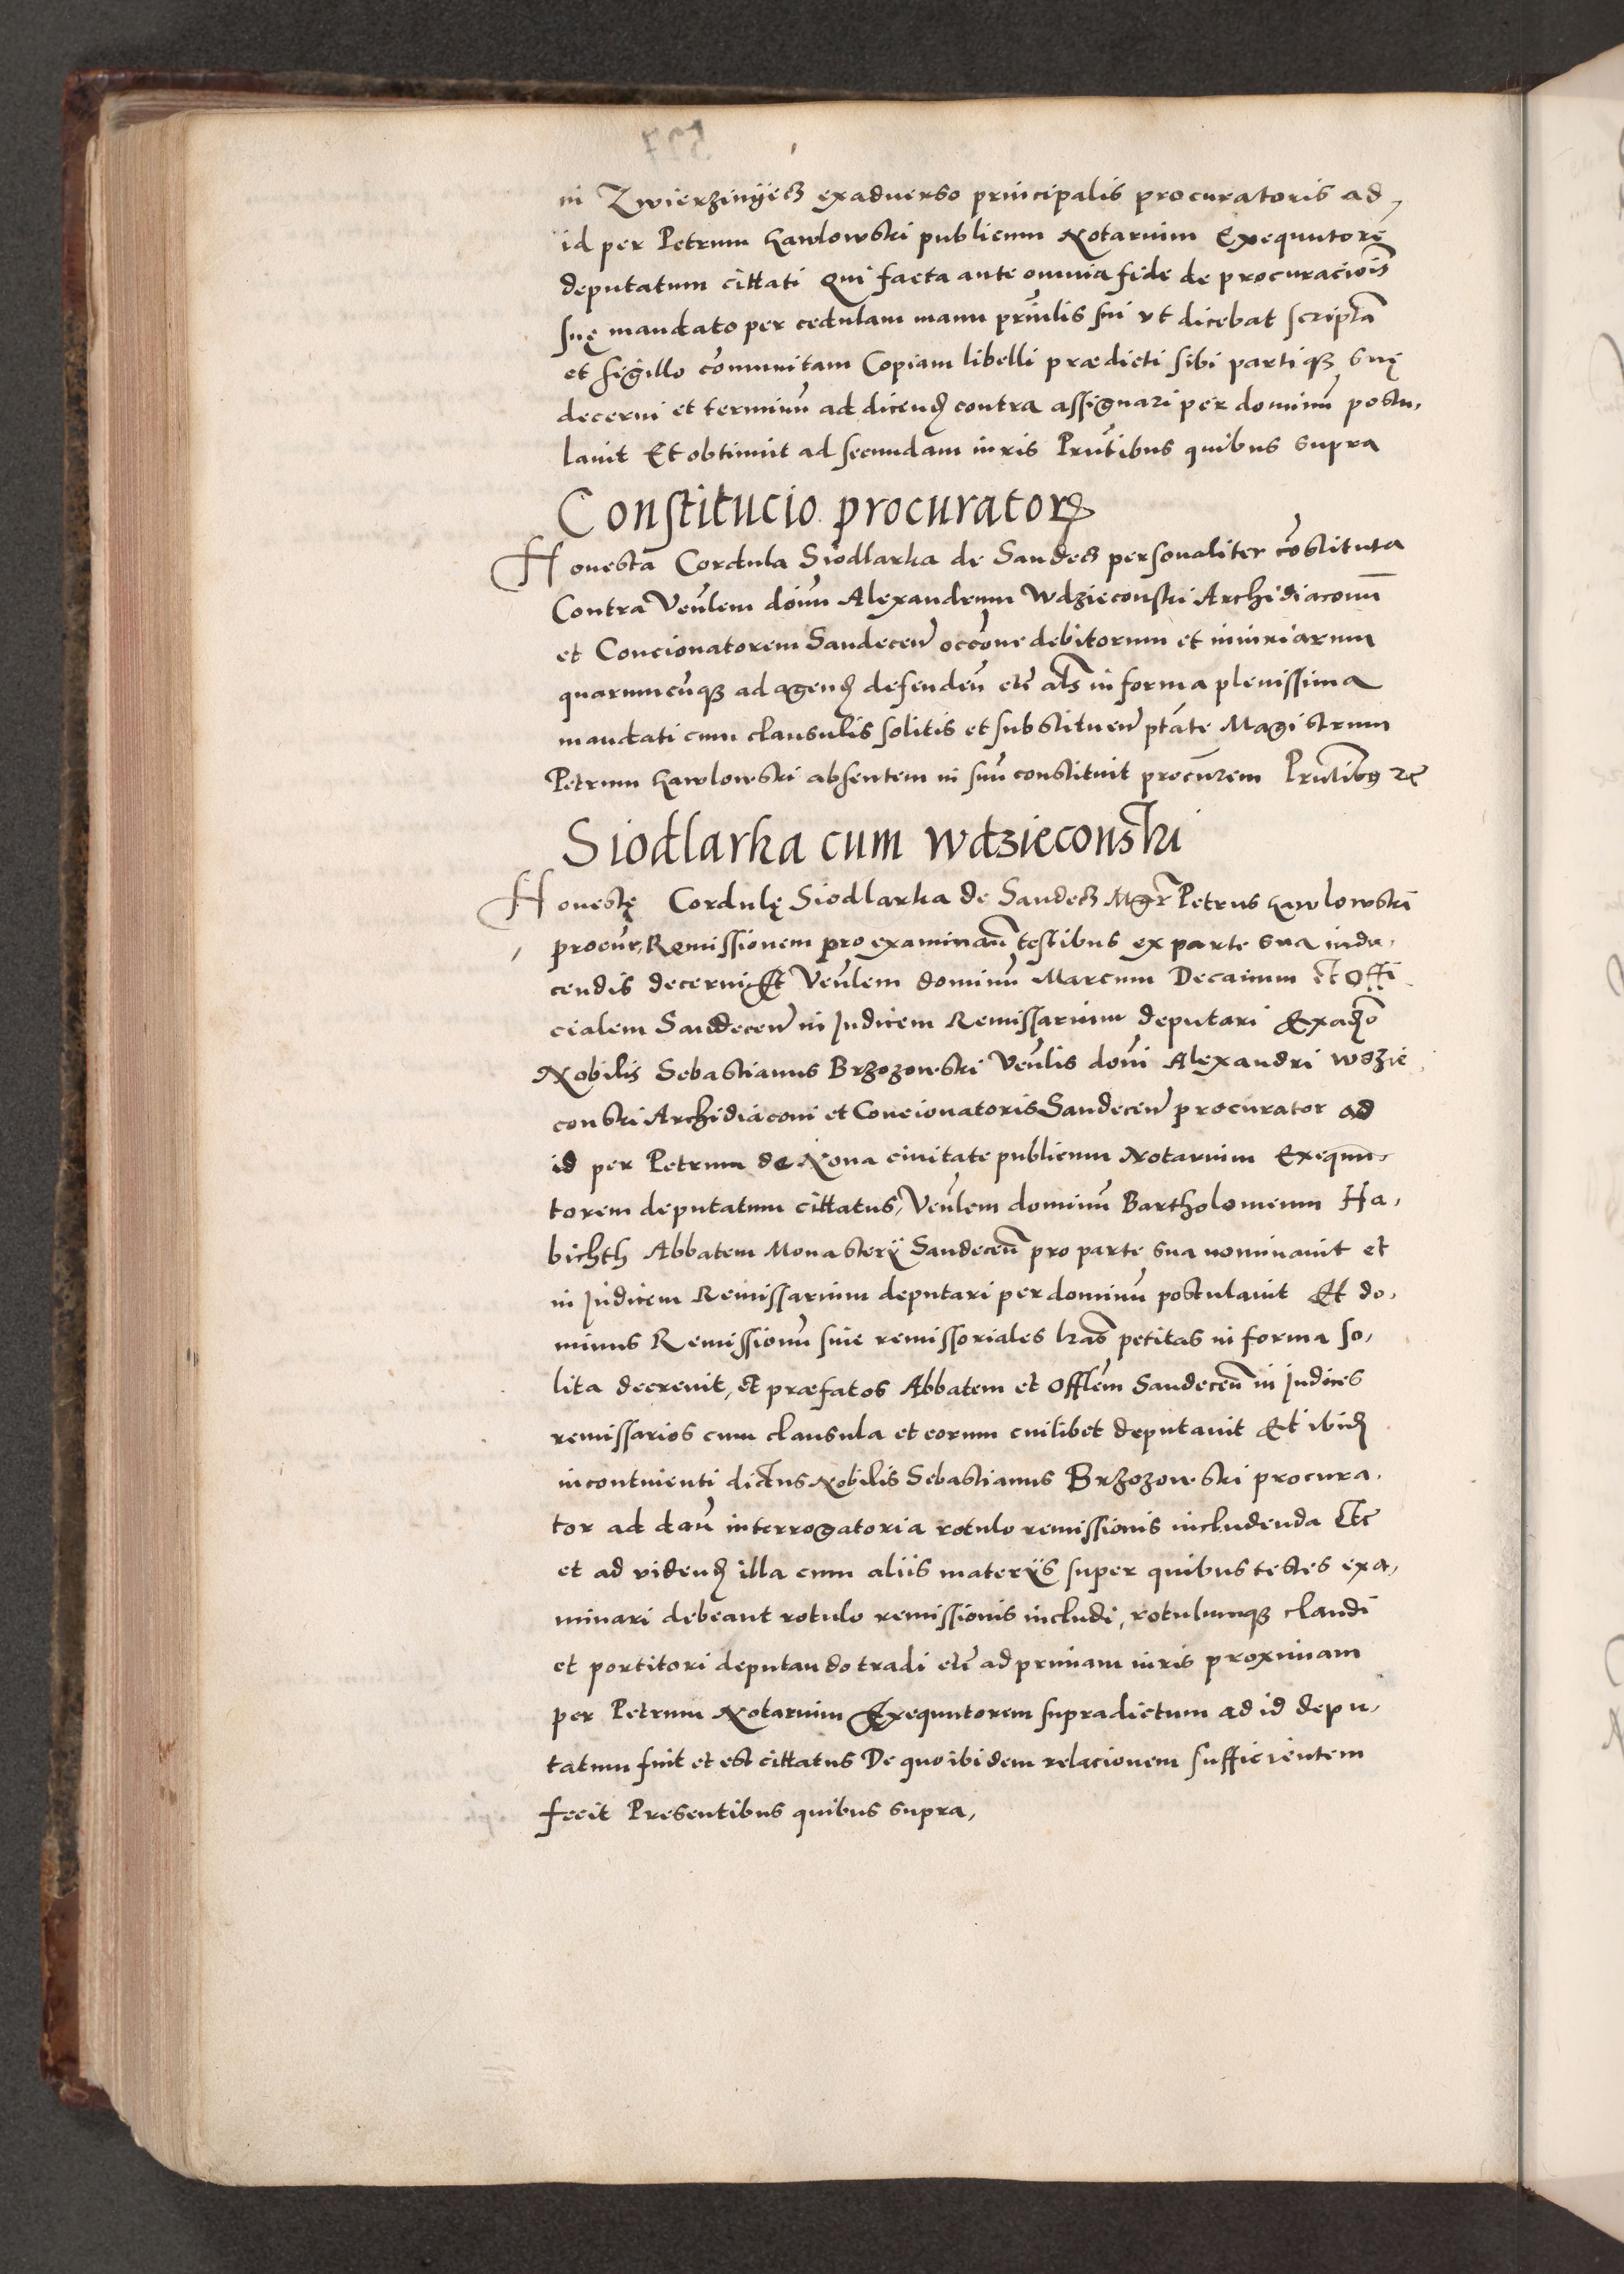 in Zwierzinÿecz exaduerso principalis procuratoris ad,
id per Petrum Gawlowski publicum Notarium Exequutorē
deputatum cittati Qui facta ante omnia fide de procuracioīs
suę mandato per cedulam manu prīnlis sui vt dicebat scriptā
et sigillo cōmunitam Copiam libelli prædicti sibi partiqꝫ suę
decerni et terminū ad dicenđ contra assignari per dominū postu,
lauit Et obtinuit ad secundam iuris Prn̄tibus quibus supra
Constitucio procuratorꝝ
Honesta Cordula Siodlarka de Sandecz personaliter cōstituta
Contra Venl̄em dōnū Alexandrum Wdzieconski Archidiaconū
et Concionatorem Sandecen̄ occōne debitorum et iniuriarum
quarumcūqꝫ ad agenđ defendeñ etc̄ alš in forma plenissima
mandati cum clausulis solitis et substituen̄ ptāte Magistrum
Petrum Gawlowski absentem in suū constituit procūrem Prn̄tibꝰ ⁊c̄
Siodlarka cum Wdzieconski
Honestę Cordulę Siodlarka de Sandecz Mgr̄ Petrus Gawlowski
procur̄, Remissionem pro examinan̄ testibus ex parte sua indu,
cendis decerni Et Venl̄em dominū Marcum Decanum et Offi
cialem Sandecen̄ in Judicem Remissarium deputari Exađo
Nobilis Sebastianus Brzozowski Venl̄is dōni Alexandri Wdzie
conski Archidiaconi et Concionatoris Sandecen̄ procurator ad
id per Petrum de Noua ciuitate publicum Notarium Exequu,
torem deputatum cittatus, Venl̄em dominū Bartholomeum Ha,
bichth Abbatem Monasterÿ Sandeceñ pro parte sua nominauit et
in Judicem Remissarium deputari per dominū postulauit Et do,
minus Remissionū siue remissoriales lrās petitas in forma so,
lita decreuit, et præfatos Abbatem et Offlēm Sandeceñ in Judices
remissarios cum clausula et eorum cuilibet deputauit Et ibiđ
incontinenti dictus Nobilis Sebastianus Brzozowski procura,
tor ad dan̄ interrogatoria rotulo remissionis includenda Etc̄
et ad videnđ illa cum aliis materÿs super quibus testes exa,
minari debeant rotulo remissionis includi, rotulumqꝫ claudi
et portitori deputando tradi etc̄ ad primam iuris proximam
per Petrum Notarium Exequutorem supradictum ad id depu,
tatum fuit et est cittatus De quo ibidem relacionem sufficientem
fecit Presentibus quibus supra,